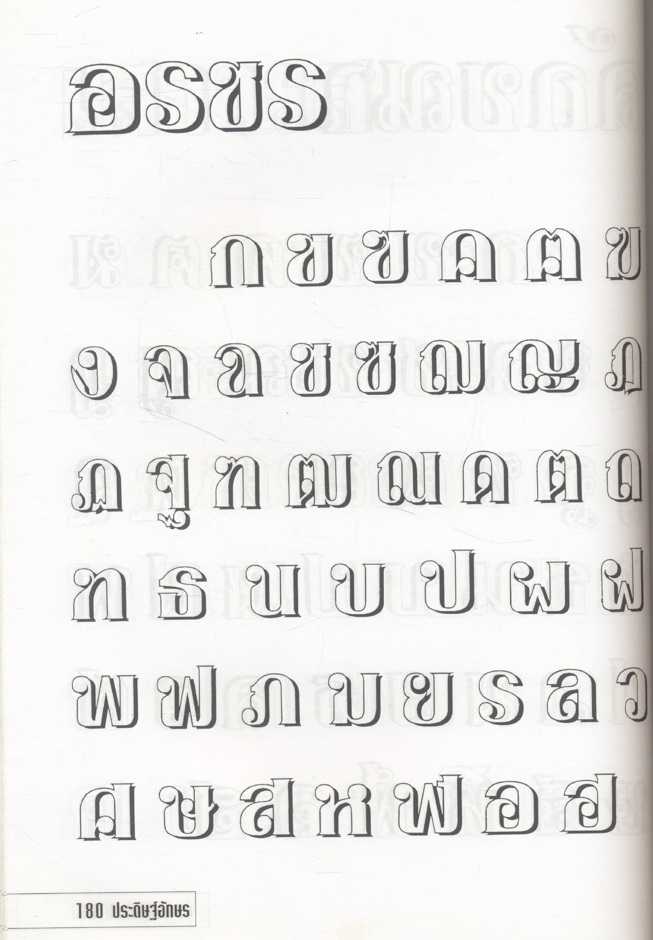 อรชร
ก ข ฃ ค ฅ ฆ
ง จ ฉ ช ซ ฌ ญ ฎ
ฏ ฐ ฑ ฒ ณ ด ต ถ
ท ธ น บ ป ผ ฝ
พ ฟ ภ ม ย ร ล ว
ศ ษ ส ห ฬ อ ฮ
180 ประดิษฐ์อักษร